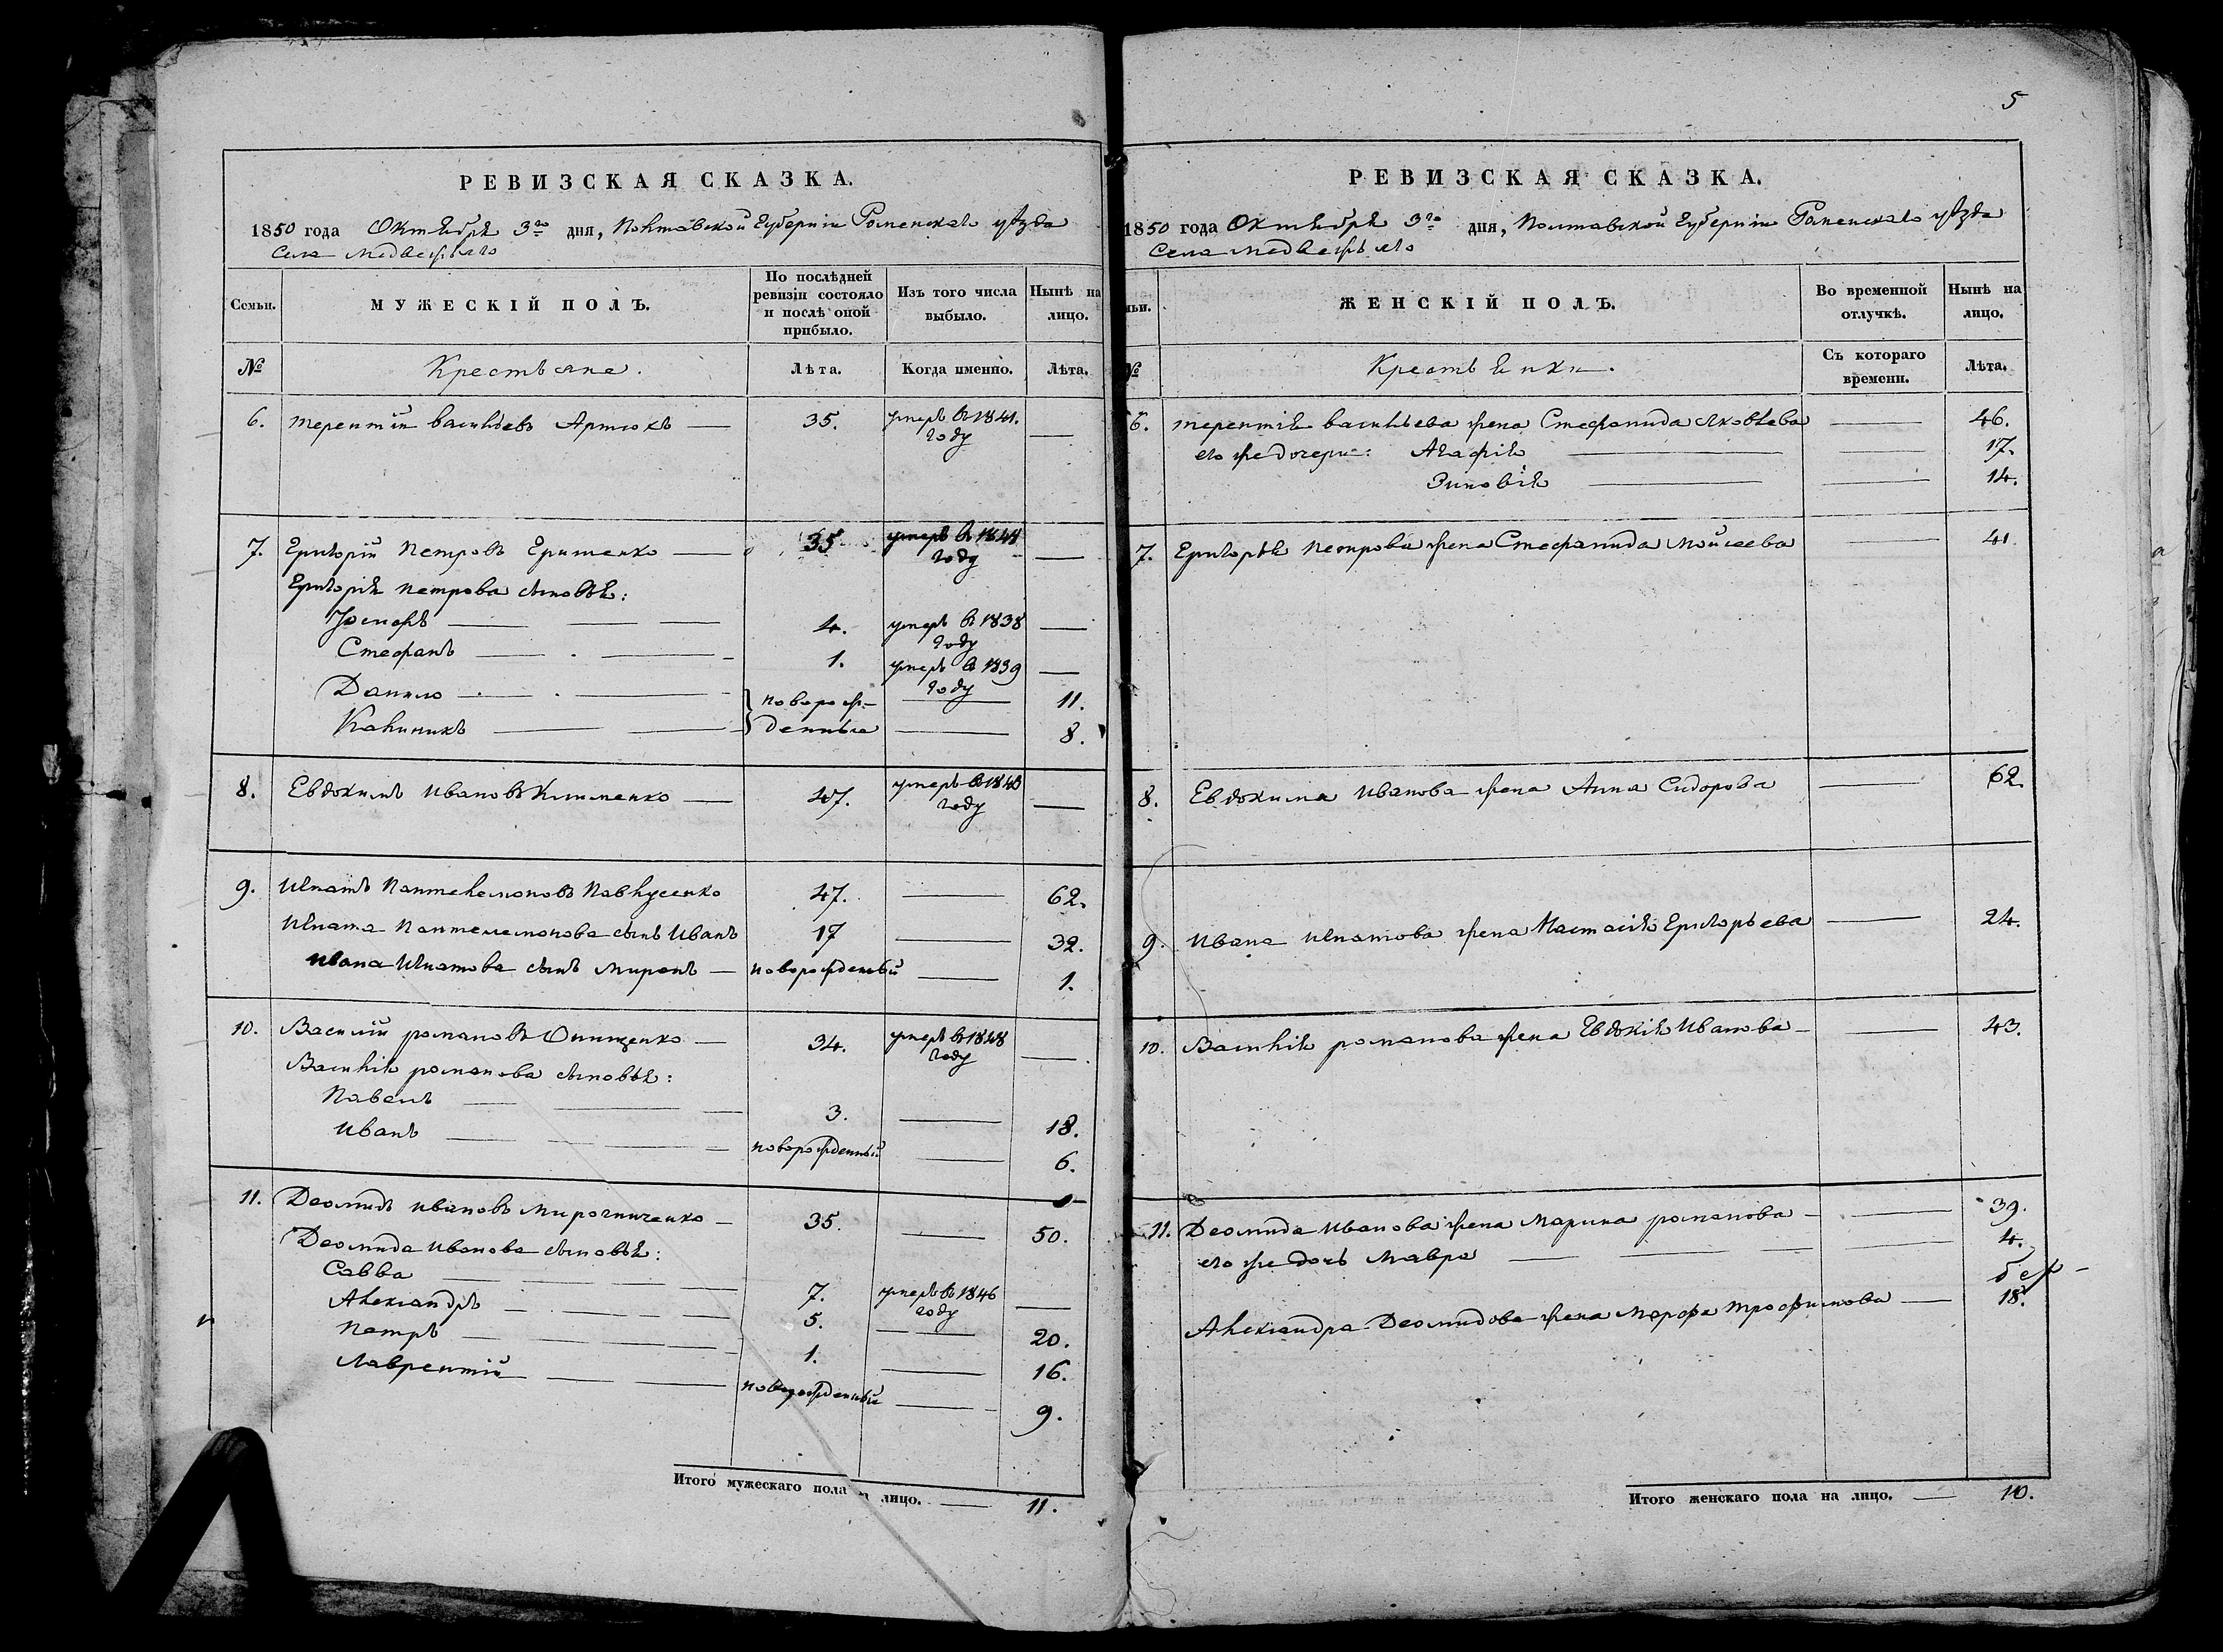 РЕВИЗСКАЯ СКАЗКА.
1850 года Октября 3го дня, Полтавской Губернии Роменскаго уѣзда
Села Медвежьяго
Семьи. МУЖЕСКІЙ ПОЛЪ. По послѣдней ревизіи состояло и послѣ оной прибыло. Изъ того числа выбыло. Нынѣ на лицо.
№ Крестьяне. Лѣта. Когда именно. Лѣта.
6. Терентій Васильевъ Артюхъ — 35. умеръ въ 1841. году —
7. Григорій Петровъ Гришенко — 35 умеръ въ 1844 году —
Григорія Петрова сыновья:
Стефанъ — 1. умеръ въ 1839 году —
4. умеръ въ 1838 году —
Данило — новорож- 11.
Калиникъ — денные — 8.
8. Евдокимъ Ивановъ Клименко — 47. умеръ въ 1840 году —
9. Игнатъ Пантелемоновъ Павлусенко 47. — 62.
Игната Пантелемонова сынъ Иванъ 17 — 32.
Ивана Игнатова сынъ Миронъ — новорожденый — 1.
10. Василій Романовъ Онищенко — 34. умеръ въ 1848 году —
Василія Романова сыновья:
Павелъ — 3. — 18.
Иванъ — новорожденный — 6.
11. Деомидъ Ивановъ Мирошниченко — 35. — 50.
Деомида Иванова сыновья:
Савва — 7. умеръ въ 1846 году —
Александръ — 5. — 20.
Петръ — 1. — 16.
Лаврентій — новорожденный — 9.
Итого мужескаго пола лицо. — 11.
5
РЕВИЗСКАЯ СКАЗКА.
1850 года Октября 3го дня, Полтавской Губерніи Роменскаго уѣзда
Села Медвежьяго
ЖЕНСКІЙ ПОЛЪ. Во временной отлучкѣ. Нынѣ на лицо.
№ Крестьянки. Съ котораго времени. Лѣта.
6. Терентія Васильева жена Стефанида Яковлева — 46.
его же дочери: Агафія — 17.
Зиновія — 14.
7. Григорья Петрова жена Стефанида Мойсеева — 41
8. Евдокима Иванова жена Анна Сидорова — 62.
9. Ивана Игнатова жена Настасія Григорьева — 24.
10. Василія Романова жена Евдокія Иванова — 43.
11. Деомида Иванова жена Марина Романова — 39.
его же дочь Мавра — 4.
Александра Деомидова жена Марфа Трофимова — 18.
Итого женскаго пола на лицо. — 10.